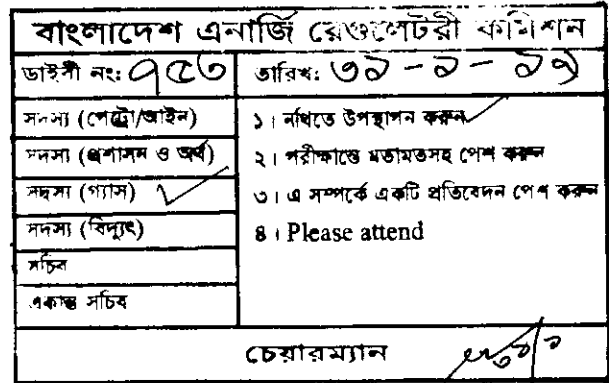 বাংলাদেশ এনার্জি রেগুলেটরী কমিশন
ডাইরী নং: ৭৫৬ তারিখ: ৩১-১-১৯
সদস্য (পেট্রো/আইন)
সদস্য (প্রশাসন ও অর্থ)
সদস্য (গ্যাস)
সদস্য (বিদ্যুৎ)
সচিব
একান্ত সচিব
১। নথিতে উপস্থাপন করুন
২। পরীক্ষান্তে মতামতসহ পেশ করুন
৩। এ সম্পর্কে একটি প্রতিবেদন পেশ করুন
৪। Please attend
চেয়ারম্যান